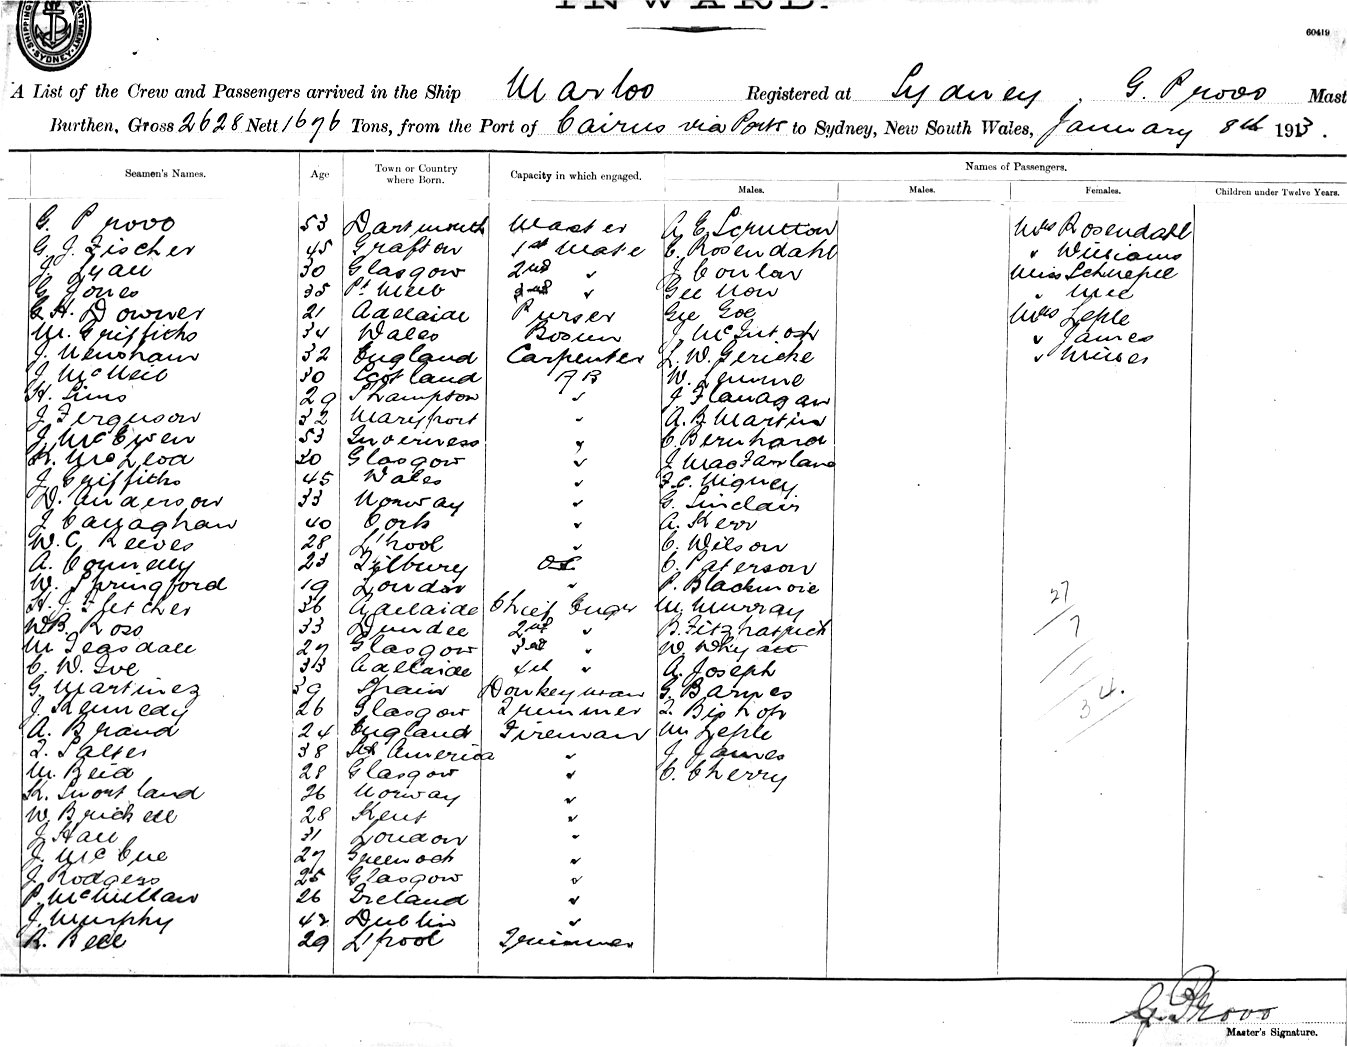 INWARD.
SHIPPING DEPARTMENT SYDNEY
60419
A List of the Crew and Passengers arrived in the Ship Marloo Registered at Sydney, G. Provo Mast
Burthen, Gross 2628 Nett 1676 Tons, from the Port of Cairns via Ports to Sydney, New South Wales, January 8th 1913.
Seamen's Names. Age Town or Country where Born. Capacity in which engaged. Names of Passengers.
Males. Males. Females. Children under Twelve Years.
G. Provo 53 Dartmouth Master A E Scrutton Mrs Rosendahl
G. J. Fischer 45 Grafton 1st Mate C. Rosendahl " Williams
J. Lyall 30 Glasgow 2nd " J Conlon Miss
G Jones 35 Pt Melb 3rd " Gee Now "
G. H. Downer 21 Adelaide Purser Gee Goe Mrs Lesle
M. Griffiths 34 Wales Bosun J McIntosh " James
J. Wensham 32 England Carpenter L. W. Gericke "
J McNeil 30 Scotland AB W.
H. Sims 29 S'hampton " J Flanagan
J Ferguson 32 Maryport " A. B. Martin
J McEwen 53 Inverness " C Bernhard
K. McLeod 30 Glasgow " J MacFarlane
J. Griffiths 45 Wales " F. C. Nigney
D. Anderson 33 Norway " G. Sinclair
J Callaghan 40 Cork " A. Kerr
W. C. Reeves 28 L'pool " C. Wilson
A. Connelly 23 Tilbury OS C. Paterson
W. Springford 19 London " P. Blackmore
H. J. Fletcher 36 Adelaide Chief Enger M. Murray
W. B. Ross 33 Dundee 2nd " B. Fitzpatrick
M. Teasdale 27 Glasgow 3rd " W. Whyatt
C. W. Ive 33 Adelaide 4th " A. Joseph
G. Martinez 39 Spain Donkeyman G. Barnes
J. Kennedy 26 Glasgow Trimmer T. Bishop
A. Brand 24 England Fireman M. Lesle
T. Salter 38 Sth America " J James
M. Reid 28 Glasgow " C. Cherry
K. Swortland 26 Norway "
W Brickell 28 Kent "
J Hall 31 London "
J. McCue 27 Greenock "
J. Rodgers 25 Glasgow "
P. McMillan 26 Ireland "
J. Murphy 42 Dublin "
R. Bell 29 L'pool Trimmer
27
7
34.
G. Provo
Master's Signature.